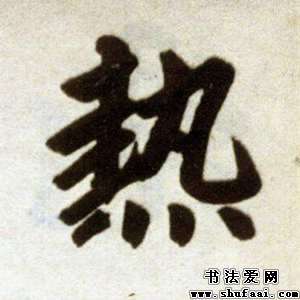 熱
书法爱网
www.shufaai.com